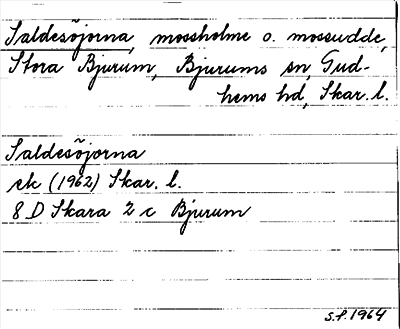 Saldesöjorna, mossholme o. mossudde,
Stora Bjurum, Bjurums sn, Gud-
hems hd, Skar. l.
Saldesöjorna
ek (1962) Skar. l.
8 D Skara 2 c Bjurum
S.F. 1964